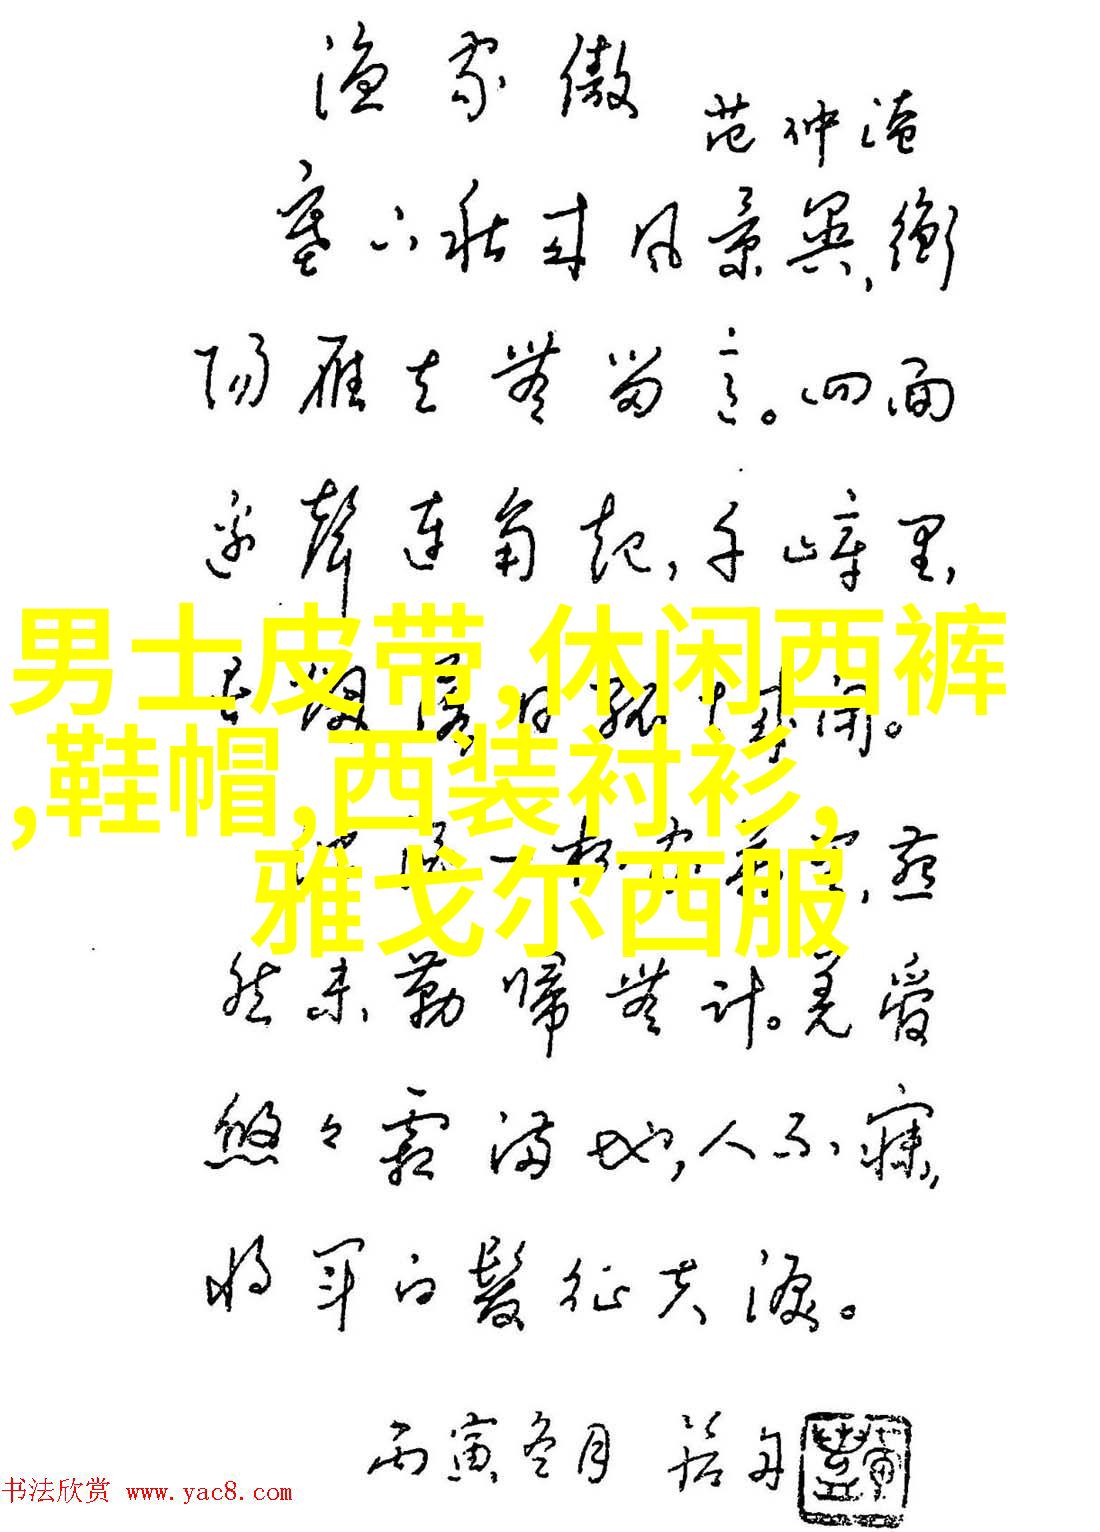 渔家傲
范仲淹
塞下秋来风景异,衡
阳雁去無留意。四面
边聲连角起,千嶂里,
長烟落日孤城闭。
男士皮带,休闲西裤
,鞋帽,西装衬衫,
雅戈尔西服
浊酒一杯家万里,燕
然未勒歸無计。羌管
悠々霜满地,人不寐,
将军白髮征夫淚。
丙寅冬月
书法欣赏 www.yac8.com